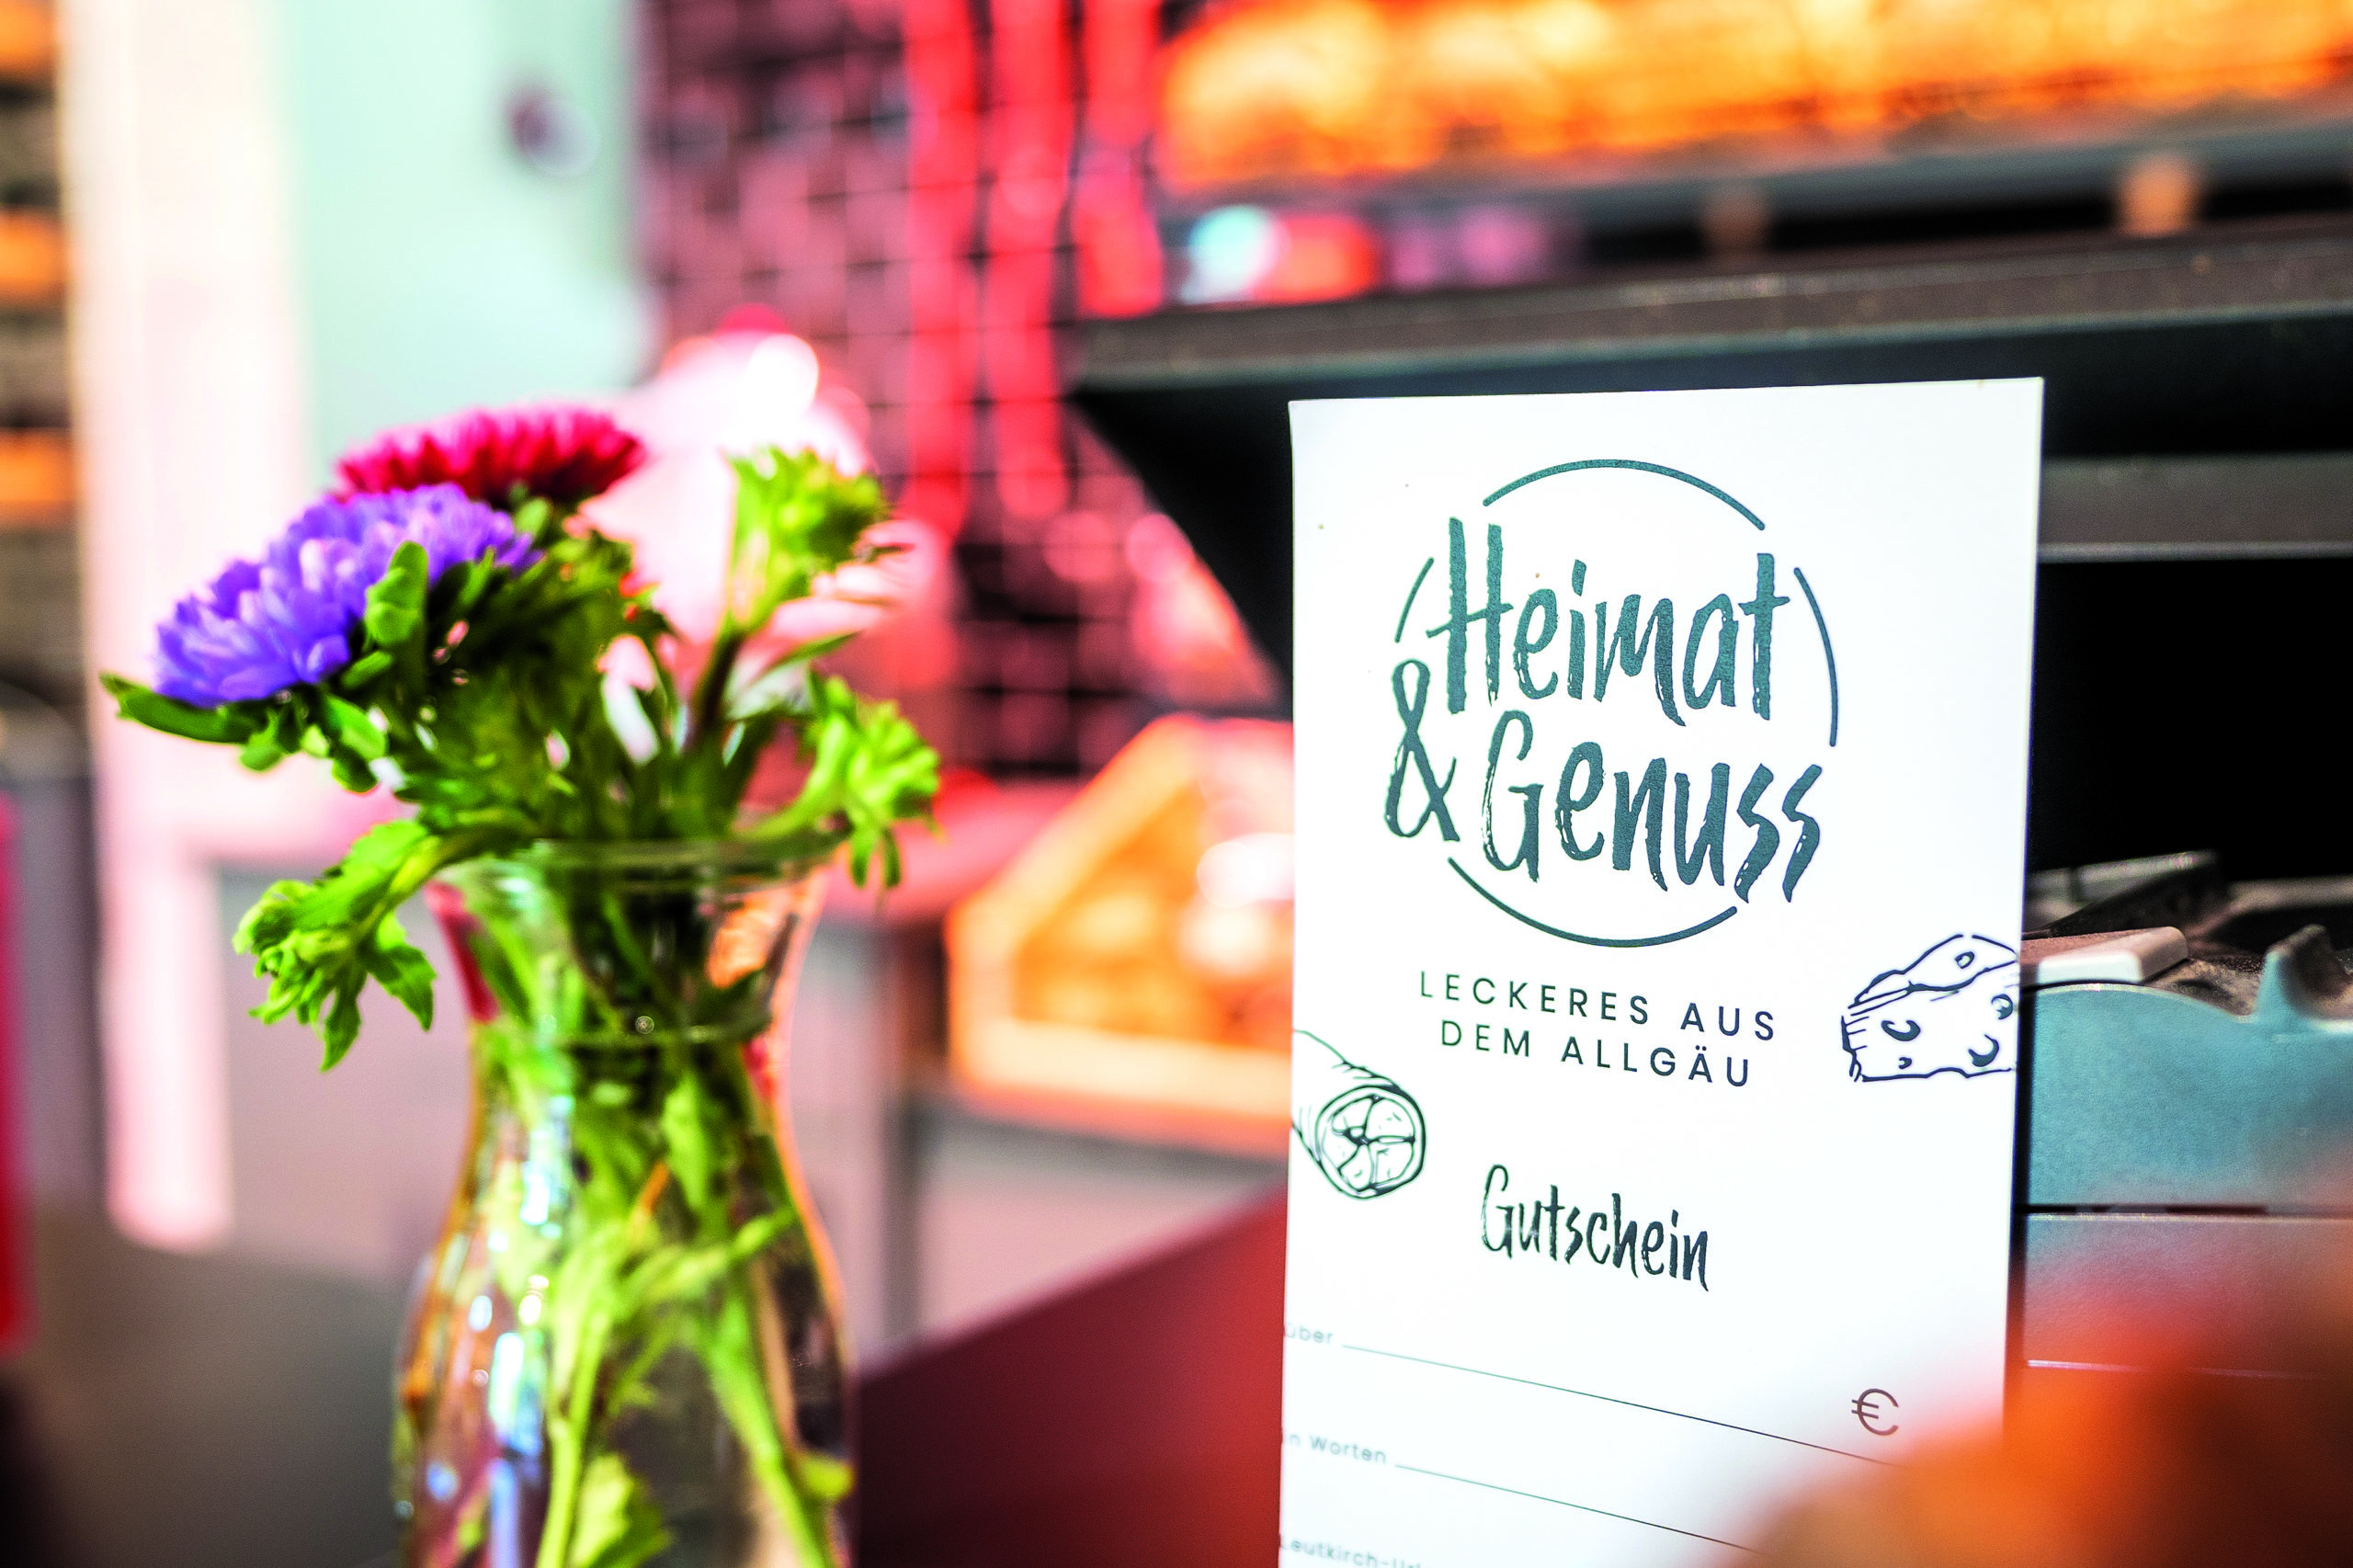 Heimat
& Genuss
LECKERES AUS
DEM ALLGÄU
Gutschein
über
€
in Worten